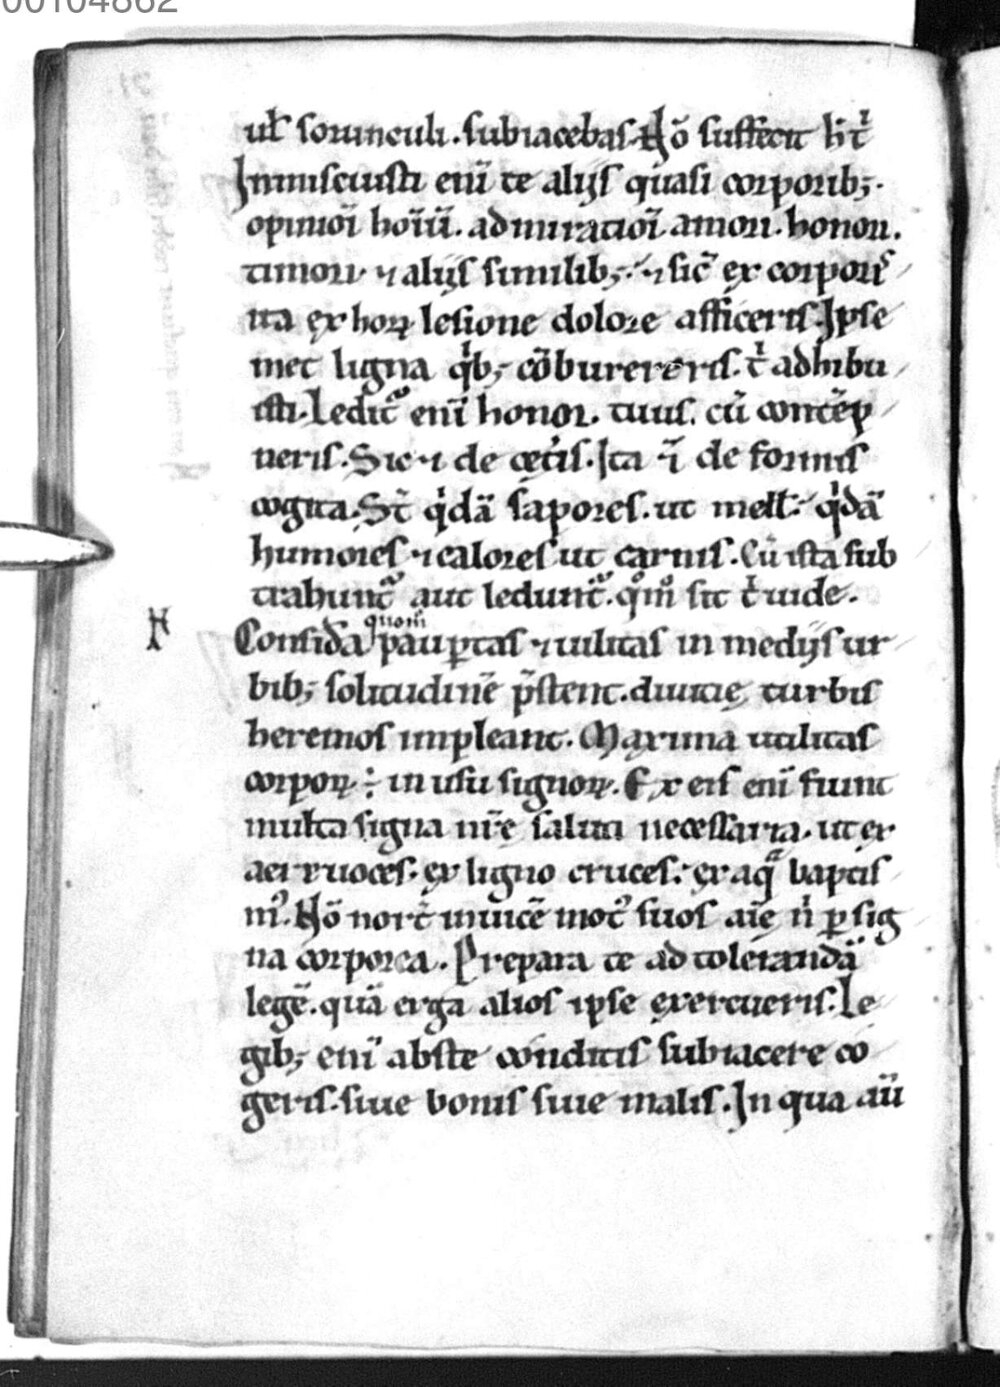 00104862
ul̄ somnculi. subiacebas. Nō suffecit h̄ t̄
Inmiscuisti eni̅ te alijs quasi corporib;.
opinioi̅ hoi̅u̅. admiratioi̅ amori. honori.
timori ⁊ alijs similib;. ⁊ sic̄ ex corporis
ita ex hoꝝ lesione dolore afficeris. Ipse
met ligna q̍b; cōbureréris. t̍ adhibu
isti. Ledit᷑ eni̅ honor. tuus. cū contēp
neris. Sic ⁊ de cęt̍is. Ita ⁊ i̅ de formis
cogita. St̄ q̍dā sapores. ut mell. q̍dā
humores ⁊ calores ut carnis. Cū ista sub
trahunt᷑ aut ledunt᷑. qͦmͦ sit t̍ uide.
N Consid̄a quom̊ paup̱tas ⁊ uilitas in medijs ur
bib; solitudinē p̄stent. diuitię turbis
heremos impleant. Maxima utilitas
corpoꝝ ÷ in usu signoꝝ. Ex eis eni̅ fiunt
multa signa nr̄e saluti necessaria. ut ex
aere uoces. ex ligno cruces. ex aqͣ baptis
mꝰ. Nō nor̄t inuicē mot᷒ suos aīe n̍ ꝑ sig
na corporea. Prepara te ad tolerandā
legē. quā erga alios ipse exercueris. Le
gib; eni̅ abste conditis subiacere co
geris. siue bonis siue malis. In qua au̅